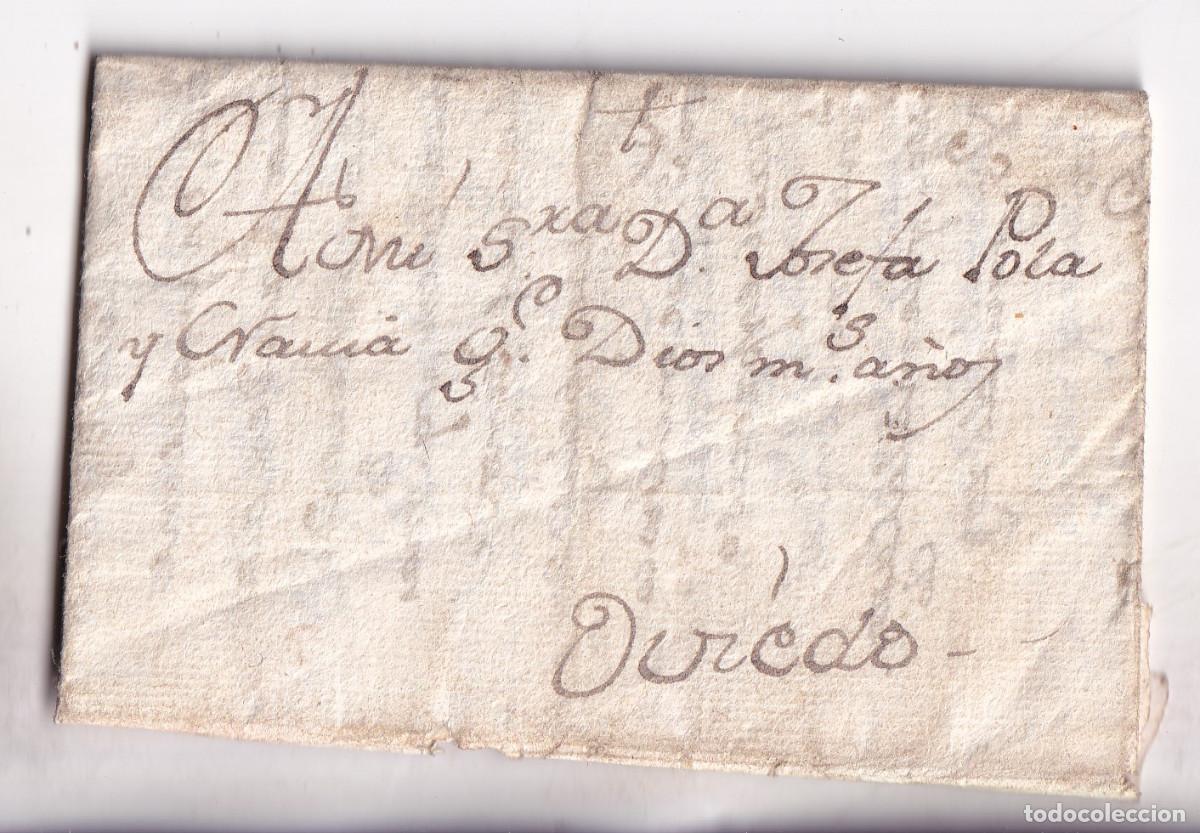 A mi S.ra D.a Josefa Pola
y Navia g.e Dios m.s años
Oviédo
todocoleccion